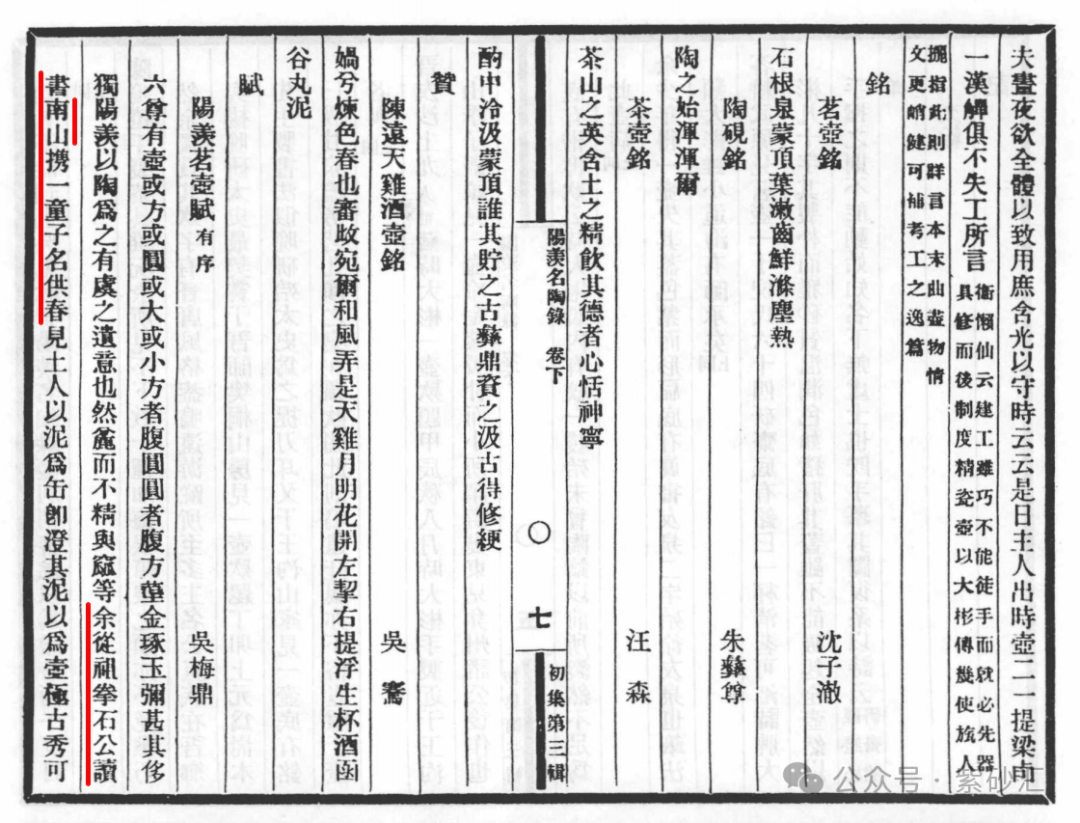 夫晝夜欲全體以致用庶含光以守時云云是日主人出時壺二一提梁卣
一漢觶俱不失工所言
衞懶仙云建工雖巧不能徒手而就必先器
具修而後制度精瓷壺以大彬傳幾使旊人
擫指此則詳言本末曲盡物情
文更峭健可補考工之逸篇
銘
茗壺銘 沈子澈
石根泉蒙頂葉漱齒鮮滌塵熱
陶硯銘 朱彝尊
陶之始渾渾爾
茶壺銘 汪森
茶山之英含土之精飲其德者心恬神寧
陽羨名陶錄 卷下 〇 七 初集第三輯
酌中泠汲蒙頂誰其貯之古彝鼎資之汲古得修綆
贊
陳遠天雞酒壺銘 吳騫
媧兮煉色春也審㪀宛爾和風弄是天雞月明花開左挈右提浮生杯酒函
谷丸泥
賦
陽羨茗壺賦有序 吳梅鼎
六尊有壺或方或圓或大或小方者腹圓圓者腹方亶金琢玉彌甚其侈
獨陽羨以陶爲之有虞之遺意也然麤而不精與窳等余從祖拳石公讀
書南山攜一童子名供春見土人以泥爲缶卽澄其泥以爲壺極古秀可
公众号·紫砂汇